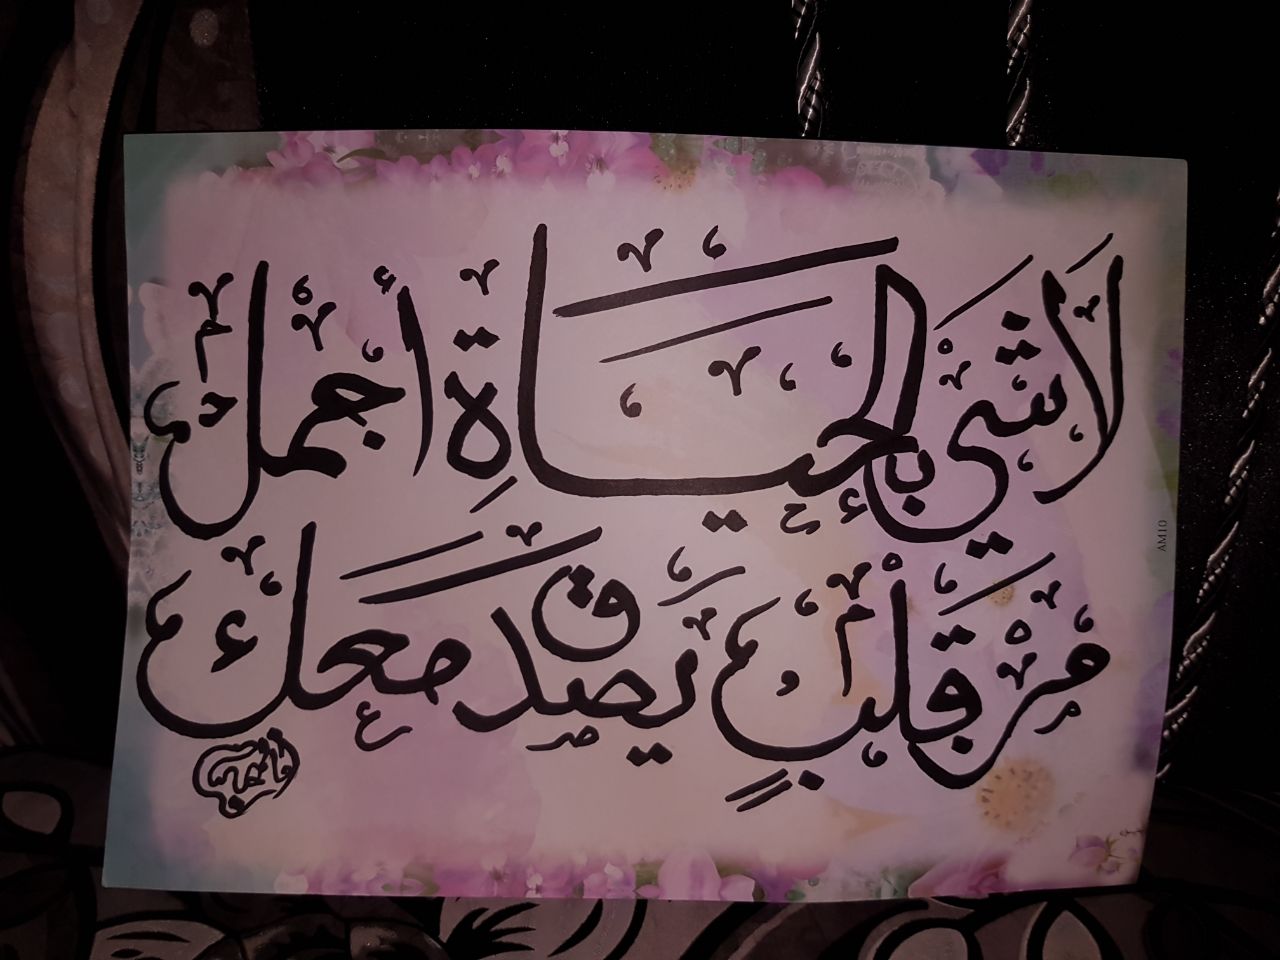 لَا شَيْ بِالحَيَاةِ أجْمَلُ
مِنْ قَلْبٍ يَصدق مَعك
AM10